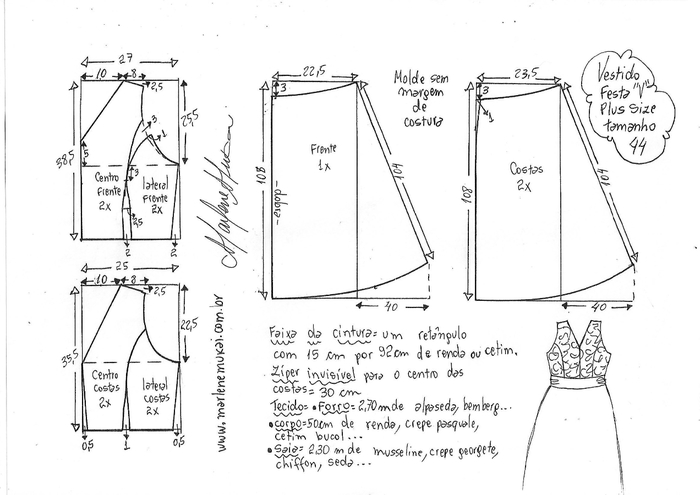 27
10
8
2,5
3
1
25,5
38,5
5
3
Centro
frente
2x
lateral
frente
2x
2,5
2
2
25
10
8
2,5
22,5
35,5
Centro
costas
2x
lateral
costas
2x
0,5
1
0,5
www.marlenemukai.com.br
Marlene Mukai
22,5
3
Frente
1x
108
-dobra-
104
40
Molde sem
margem
de
costura
23,5
3
1
Costas
2x
108
104
40
Vestido
Festa "V"
Plus Size
tamanho
44
Faixa da cintura= um retângulo
com 15 cm por 92cm de renda ou cetim.
Zíper invisível para o centro das
costas= 30 cm
Tecido: • Forro= 2,70m de alpaseda, bemberg...
• corpo= 50cm de renda, crepe pasquale,
cetim bucol...
• Saia= 2,30 m de musseline, crepe georgete,
chiffon, seda...